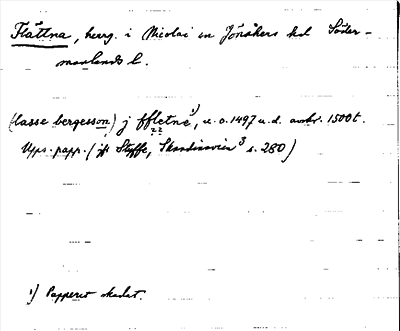 Flättna, herrg. i Nicolai sn Jönåkers hd Söder-
manlands l.
(lasse bergesson) j ffletne¹⁾, u.o. 1497 u.d. avskr. 1500t.
Upps. papp. (jfr Styffe, Skandinavien³ s. 280)
¹⁾ Papperet skadat.